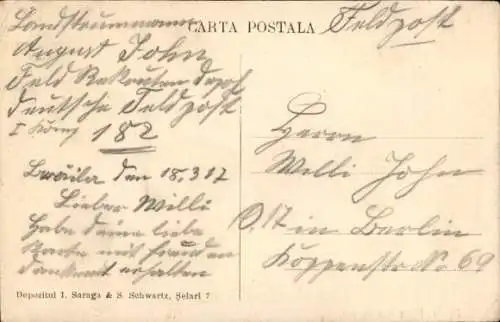 CARTA POSTALA
Feldpost
Landsturmmann
August John
Feld Rekruten Depot
deutsche Feldpost
182
Braila den 18.3.17
Lieber Willi
Habe deine liebe
Karte mit Freuden
dankent erhalten
Herrn
Willi John
O.17 in Berlin
Koppenstr No 69
Depozitul I. Saraga & S. Schwartz, Șelari 7